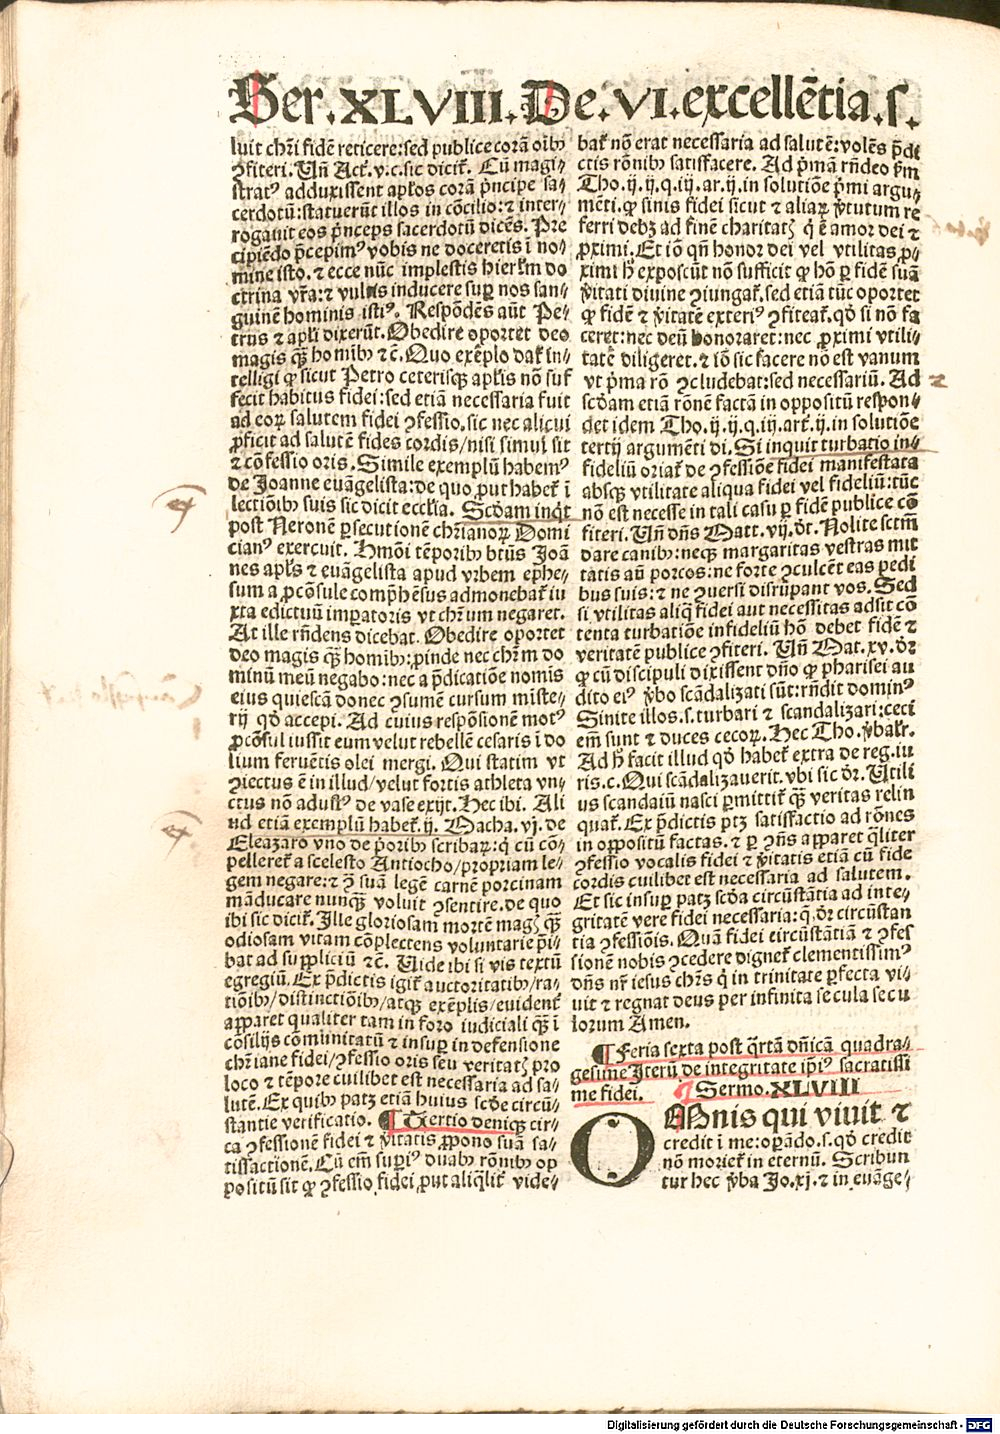 Ser.XLVIII.De.VI.excellētia.s.
luit chr̄i fidē reticere:sed publice corā oībꝫ
ꝯfiteri. Vn̄ Act̄. v.c.sic dicit̄. Cū magi⸗
stratꝰ adduxissent ap̄los corā p̄ncipe sa⸗
cerdotū:statuerūt illos in cōcilio:⁊ inter⸗
rogauit eos p̄nceps sacerdotū dicēs. Pre
cipiēdo p̄cepimꝰ vobis ne doceretis ī no⸗
mine isto.⁊ ecce nūc implestis hierl̄m do
ctrina vr̄a:⁊ vultis inducere suꝑ nos san⸗
guinē hominis istiꝰ. Respōdēs aūt Pe⸗
trus ⁊ apl̄i dixerūt. Obedire oportet deo
magis qꝫ̄ homībꝫ ⁊ c̄. Quo exēplo dat̄ in⸗
telligi ꝙ sicut Petro ceterisqꝫ apl̄is nō suf
fecit habitus fidei:sed etiā necessaria fuit
ad eoꝝ salutem fidei ꝯfessio, sic nec alicui
ꝓficit ad salutē fides cordis/nisi simul sit
⁊ cōfessio oris. Simile exemplū habemꝰ
de Joanne euāgelista:de quo ꝓut habet̄ ī
lectiōibꝫ suis sic dicit eccl̄ia. Scd̄am inqͥt
post Neronē ꝑsecutionē chr̄ianoꝝ Domi
cianꝰ exercuit. Hmōi tēporibꝫ btūs Joā
nes apl̄s ⁊ euāgelista apud vrbem ephe⸗
sum a ꝓcōsule comp̄hēsus admonebat̄ iu
xta edictuū imꝑatoris vt chr̄um negaret.
At ille rn̄dens dicebat. Obedire oportet
deo magis qꝫ̄ homībꝫ:ꝓinde nec chr̄m do
minū meū negabo:nec a p̄dicatiōe nomīs
eius quiescā donec ꝯsumē cursum miste⸗
rij qd̄ accepi. Ad cuius respōsionē motꝰ
ꝓcōsul iussit eum velut rebellē cesaris ī do
lium feruētis olei mergi. Qui statim vt
ꝯiectus ē in illud/velut fortis athleta vn⸗
ctus nō adustꝰ de vase exijt. Hec ibi. Ali
ud etiā exemplū habet̄.ij. Macha.vj.de
Eleazaro vno de p̄oribꝫ scribaꝝ:qͥ cū cō⸗
pelleret̄ a scelesto Antiocho/propriam le⸗
gem negare:⁊ ꝯ̄ suā legē carnē porcinam
māducare nunqꝫ̄ voluit ꝯsentire.de quo
ibi sic dicit̄. Ille gloriosam mortē magꝫ qꝫ̄
odiosam vitam cōplectens voluntarie p̄i⸗
bat ad suppliciū ⁊ c̄. Vide ibi si vis textū
egregiū. Ex p̄dictis igit̄ auctoritatibꝫ/ra⸗
tiōibꝫ/distinctiōibꝫ/atqꝫ exēplis/euident̄
apparet qualiter tam in foro iudiciali qꝫ̄ ī
cōsilijs cōmunitatū ⁊ insuꝑ in defensione
chr̄iane fidei/ꝯfessio oris seu veritatꝫ pro
loco ⁊ tēpore cuilibet est necessaria ad sa⸗
lutē. Ex quibꝫ patꝫ etiā huius scd̄e circū⸗
stantie verificatio. ¶ Tertio deniqꝫ cir⸗
ca ꝯfessionē fidei ⁊ v̄itatis ꝓpono suā sa⸗
tisfactionē. Cū em̄ suꝑiꝰ duabꝫ rōnibꝫ op
positū sit ꝙ ꝯfessio fidei ꝓut aliql̄it̄ vide⸗
bat̄ nō erat necessaria ad salutē:volēs p̄di
ctis rōnibꝫ satisfacere. Ad p̄mā rn̄deo ẜm
Tho.ij.ij.q.iij.ar.ij.in solutiōe p̄mi argu⸗
mēti.ꝙ finis fidei sicut ⁊ aliaꝝ v̄tutum re
ferri debꝫ ad finē charitatꝫ qͥ ē amor dei ⁊
ꝓximi. Et iō qn̄ honor dei vel vtilitas ꝓ⸗
ximi h̄ exposcūt nō sufficit ꝙ hō ꝑ fidē suā
v̄itati diuine ꝯiungat̄.sed etiā tūc oportet
ꝙ fidē ⁊ v̄itatē exteriꝰ ꝯfiteat̄.qd̄ si nō fa
ceret:nec deū honoraret:nec ꝓximi vtili⸗
tatē diligeret.⁊ iō sic facere nō est vanum
vt p̄ma rō ꝯcludebat:sed necessariū. Ad
scd̄am etiā rōnē factā in oppositū respon⸗
det idem Tho.ij.ij.q.iij.art̄.ij.in solutiōe
tertij argumēti di. Si inquit turbatio in⸗
fideliū oriat̄ de ꝯfessiōe fidei manifestata
absqꝫ vtilitate aliqua fidei vel fideliū:tūc
nō est necesse in tali casu ꝑ fidē publice cō
fiteri. Vn̄ dn̄s Matt.vij.dt̄. Nolite sctm̄
dare canibꝫ:neqꝫ margaritas vestras mit
tatis aū porcos:ne forte ꝯculcēt eas pedi
bus suis:⁊ ne ꝯuersi disrūpant vos. Sed
si vtilitas aliq̄ fidei aut necessitas adsit cō
tenta turbatiōe infideliū hō debet fidē ⁊
veritatē publice ꝯfiteri. Vn̄ Mat.xv.dr̄
ꝙ cū discipuli dixissent dn̄o ꝙ pharisei au
dito eiꝰ v̄bo scādalizati sūt:rn̄dit dominꝰ
Sinite illos.s.turbari ⁊ scandalizari:ceci
em̄ sunt ⁊ duces cecoꝝ. Hec Tho.v̄balr̄.
Ad h̄ facit illud qd̄ habet̄ extra de reg.iu
ris.c. Qui scādalizauerit.vbi sic dr̄. Utili
us scandalū nasci ꝑmittit̄ qꝫ̄ veritas relin
quat̄. Ex p̄dictis ptꝫ satisfactio ad rōnes
in oppositū factas.⁊ ꝑ ꝯn̄s apparet q̄liter
ꝯfessio vocalis fidei ⁊ v̄itatis etiā cū fide
cordis cuilibet est necessaria ad salutem.
Et sic insuꝑ patꝫ scd̄a circūstātia ad inte⸗
gritatē vere fidei necessaria:q̄ dr̄ circūstan
tia ꝯfessiōis. Quā fidei circūstātiā ⁊ ꝯfes
sionē nobis ꝯcedere dignet̄ clementissimꝰ
dn̄s nr̄ iesus chr̄s qͥ in trinitate ꝑfecta vi⸗
uit ⁊ regnat deus per infinita secula secu
lorum Amen.
¶ Feria sexta post q̄rtā dn̄icā quadra⸗
gesime Iterū de integritate ip̄iꝰ sacratissi
me fidei. ¶ Sermo.XLVIII
OMnis qui viuit ⁊
credit ī me:oꝑādo.s.qd̄ credit
nō moriet̄ in eternū. Scribun
tur hec v̄ba Jo.xj.⁊ in euāge⸗
Digitalisierung gefördert durch die Deutsche Forschungsgemeinschaft - DFG